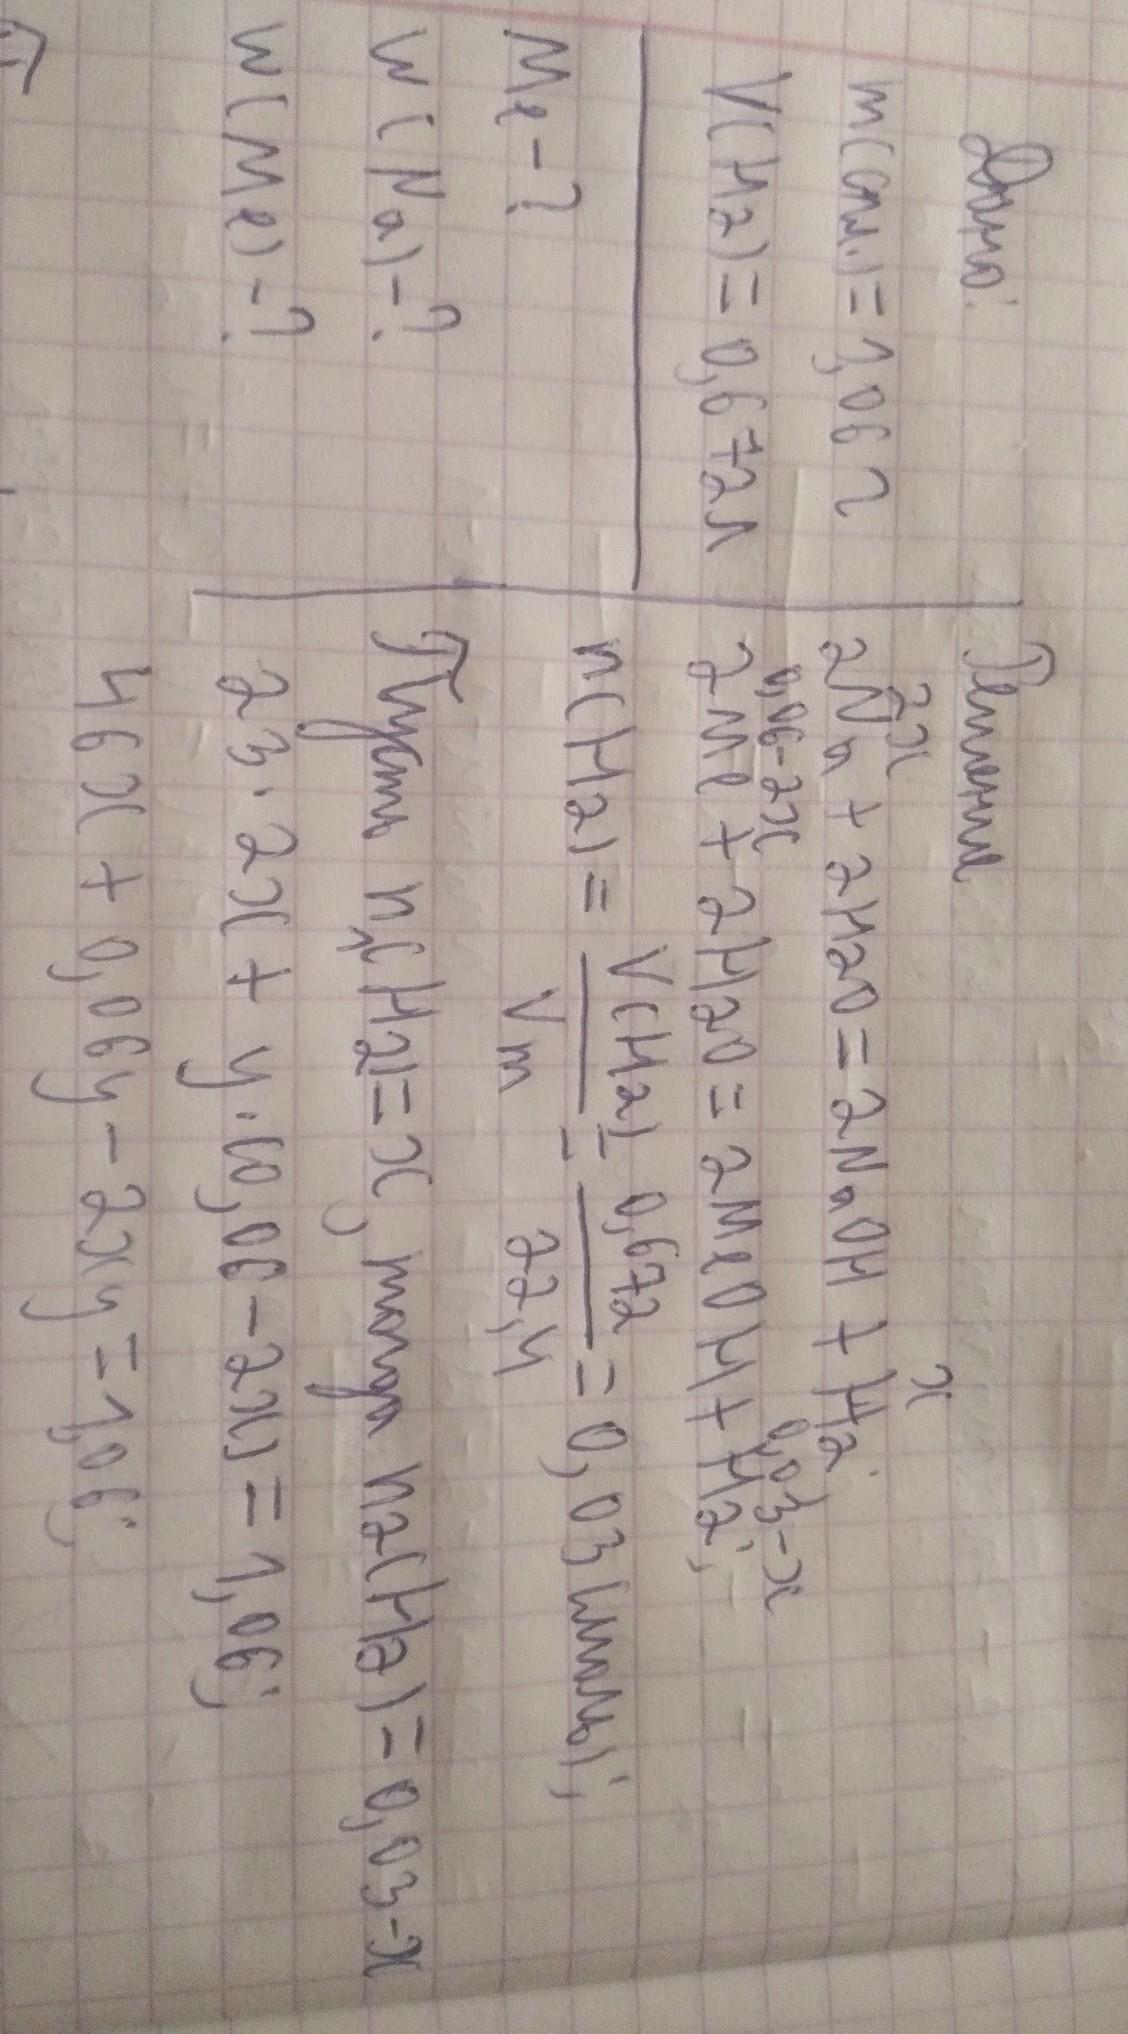 Дано:
m(спл.) = 1,06 г
V(H2) = 0,672 л
Me - ?
W(Na) - ?
W(Me) - ?
Решение
2x x
2Na + 2H2O = 2NaOH + H2;
0,06-2x 0,03-x
2Me + 2H2O = 2MeOH + H2;
n(H2) = V(H2)/Vm = 0,672/22,4 = 0,03 (моль);
Пусть n1(H2) = x, тогда n2(H2) = 0,03-x
23·2x + y·(0,06-2x) = 1,06;
46x + 0,06y - 2xy = 1,06;